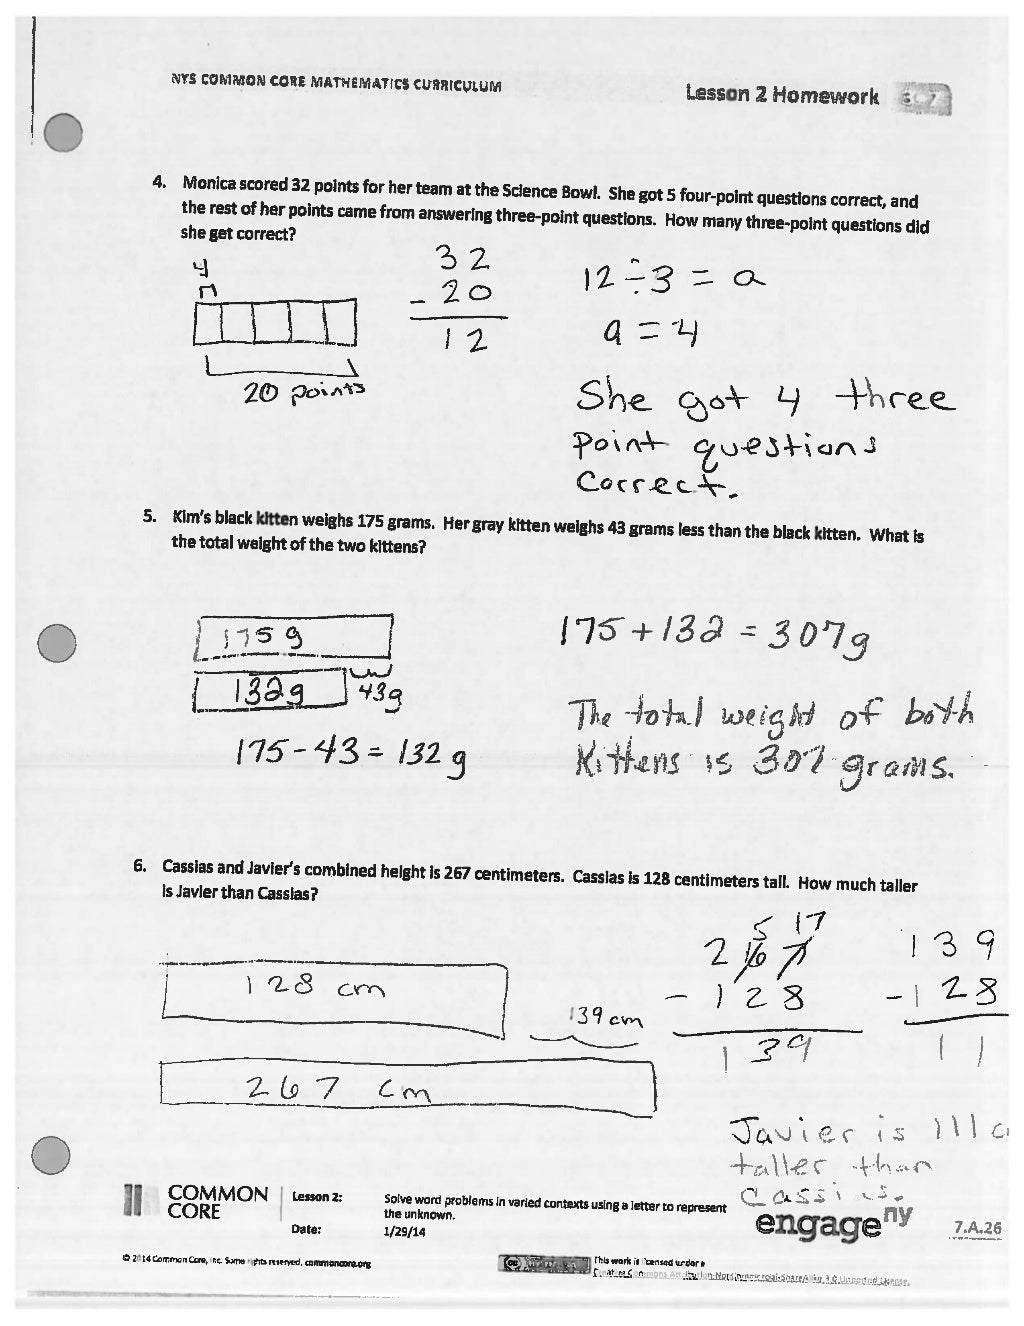 NYS COMMON CORE MATHEMATICS CURRICULUM
Lesson 2 Homework
4. Monica scored 32 points for her team at the Science Bowl. She got 5 four-point questions correct, and
the rest of her points came from answering three-point questions. How many three-point questions did
she get correct?
4
20 points
32
- 20
12
12 ÷ 3 = a
a = 4
She got 4 three
point questions
correct.
5. Kim's black kitten weighs 175 grams. Her gray kitten weighs 43 grams less than the black kitten. What is
the total weight of the two kittens?
175 g
132g 43g
175 - 43 = 132 g
175 + 132 = 307g
The total weight of both
Kittens is 307 grams.
6. Cassias and Javier's combined height is 267 centimeters. Cassias is 128 centimeters tall. How much taller
is Javier than Cassias?
128 cm
139 cm
267 cm
5 17
267
- 128
139
139
- 128
11
Javier is 111 c
taller than
Cassias.
COMMON
CORE
Lesson 2: Solve word problems in varied contexts using a letter to represent
the unknown.
Date: 1/29/14
engageny
7.A.26
© 2014 Common Core, Inc. Some rights reserved. commoncore.org
This work is licensed under a
Creative Commons Attribution-NonCommercial-ShareAlike 3.0 Unported License.